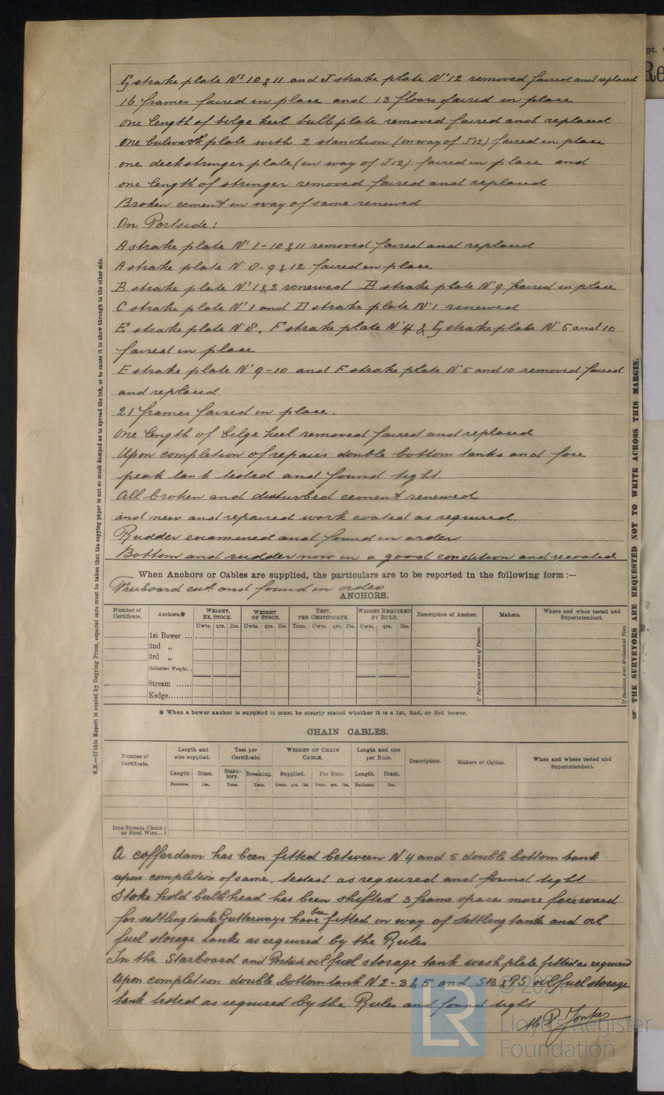 G strake plate No 10 & 11 and J strake plate No 12 removed faired and replaced
16 frames faired in place and 13 floors faired in place
one length of bilge keel bulb plate removed faired and replaced
one bulwark plate with 2 stanchion (in way of J 12) faired in place
one deckstringer plate (in way of J 12) faired in place and
one length of stringer removed faired and replaced
Broken cement in way of same renewed
On Portside:
A strake plate No 1-10 & 11 removed faired and replaced
A strake plate N 8-9 & 12 faired in place
B strake plate No 1 & 2 renewed B strake plate N 9 faired in place
C strake plate No 1 and D strake plate No 1 renewed
E strake plate N 8, F strake plate No 4 & G strake plate No 5 and 10
faired in place
E strake plate No 9-10 and F strake plate No 5 and 10 removed faired
and replaced.
21 frames faired in place.
one length of bilge keel removed faired and replaced
Upon completion of repairs double bottom tanks and fore
peak tank tested and found tight.
All broken and disturbed cement renewed
and new and repaired work coated as required.
Rudder examined and found in order
Bottom and rudder now in a good condition and recoated
When Anchors or Cables are supplied, the particulars are to be reported in the following form :—
Freeboard cut and found in order
ANCHORS.
Number of Certificate. Anchors.* WEIGHT, EX. STOCK. WEIGHT OF STOCK. TEST, PER CERTIFICATE. WEIGHT REQUIRED BY RULE. Description of Anchor. Makers. Where and when tested and Superintendent.
Cwts. qrs. lbs. Cwts. qrs. lbs. Tons. Cwts. qrs. lbs. Cwts. qrs. lbs.
1st Bower ...
2nd „
3rd „
Collective Weight.
Stream
Kedge
* When a bower anchor is supplied it must be clearly stated whether it is a 1st, 2nd, or 3rd bower.
CHAIN CABLES.
Number of Certificate. Length and size supplied. Test per Certificate. WEIGHT OF CHAIN CABLE. Length and size per Rule. Description. Makers of Cables. When and where tested and Superintendent.
Length. Diam. Statutory. Breaking. Supplied. Per Rule. Length. Diam.
Fathoms. Ins. Tons. Tons. Cwts. qrs. lbs. Cwts. qrs. lbs. Fathoms. Ins.
Iron Stream Chain or Steel Wire...
A cofferdam has been fitted between N 4 and 5 double bottom tank
upon completion of same, tested as required and found tight
Stoke hold bulkhead has been shifted 3 frame spaces more forward
for settling tank Gutterways have been fitted in way of settling tanks and oil
fuel storage tanks as required by the Rules
In the Starboard and Portside oil fuel storage tank wash plate fitted as required
Upon completion double bottom tank N 2-3 & 5 and SB & PS oil fuel storage
tank tested as required by the Rules and found tight
N.B.—If this Report is copied by Copying Press, especial care must be taken that the copying paper is not so much damped as to spread the ink, or to cause it to show through to the other side.
THE SURVEYORS ARE REQUESTED NOT TO WRITE ACROSS THIS MARGIN.
Lloyd's Register
Foundation
LR
Re